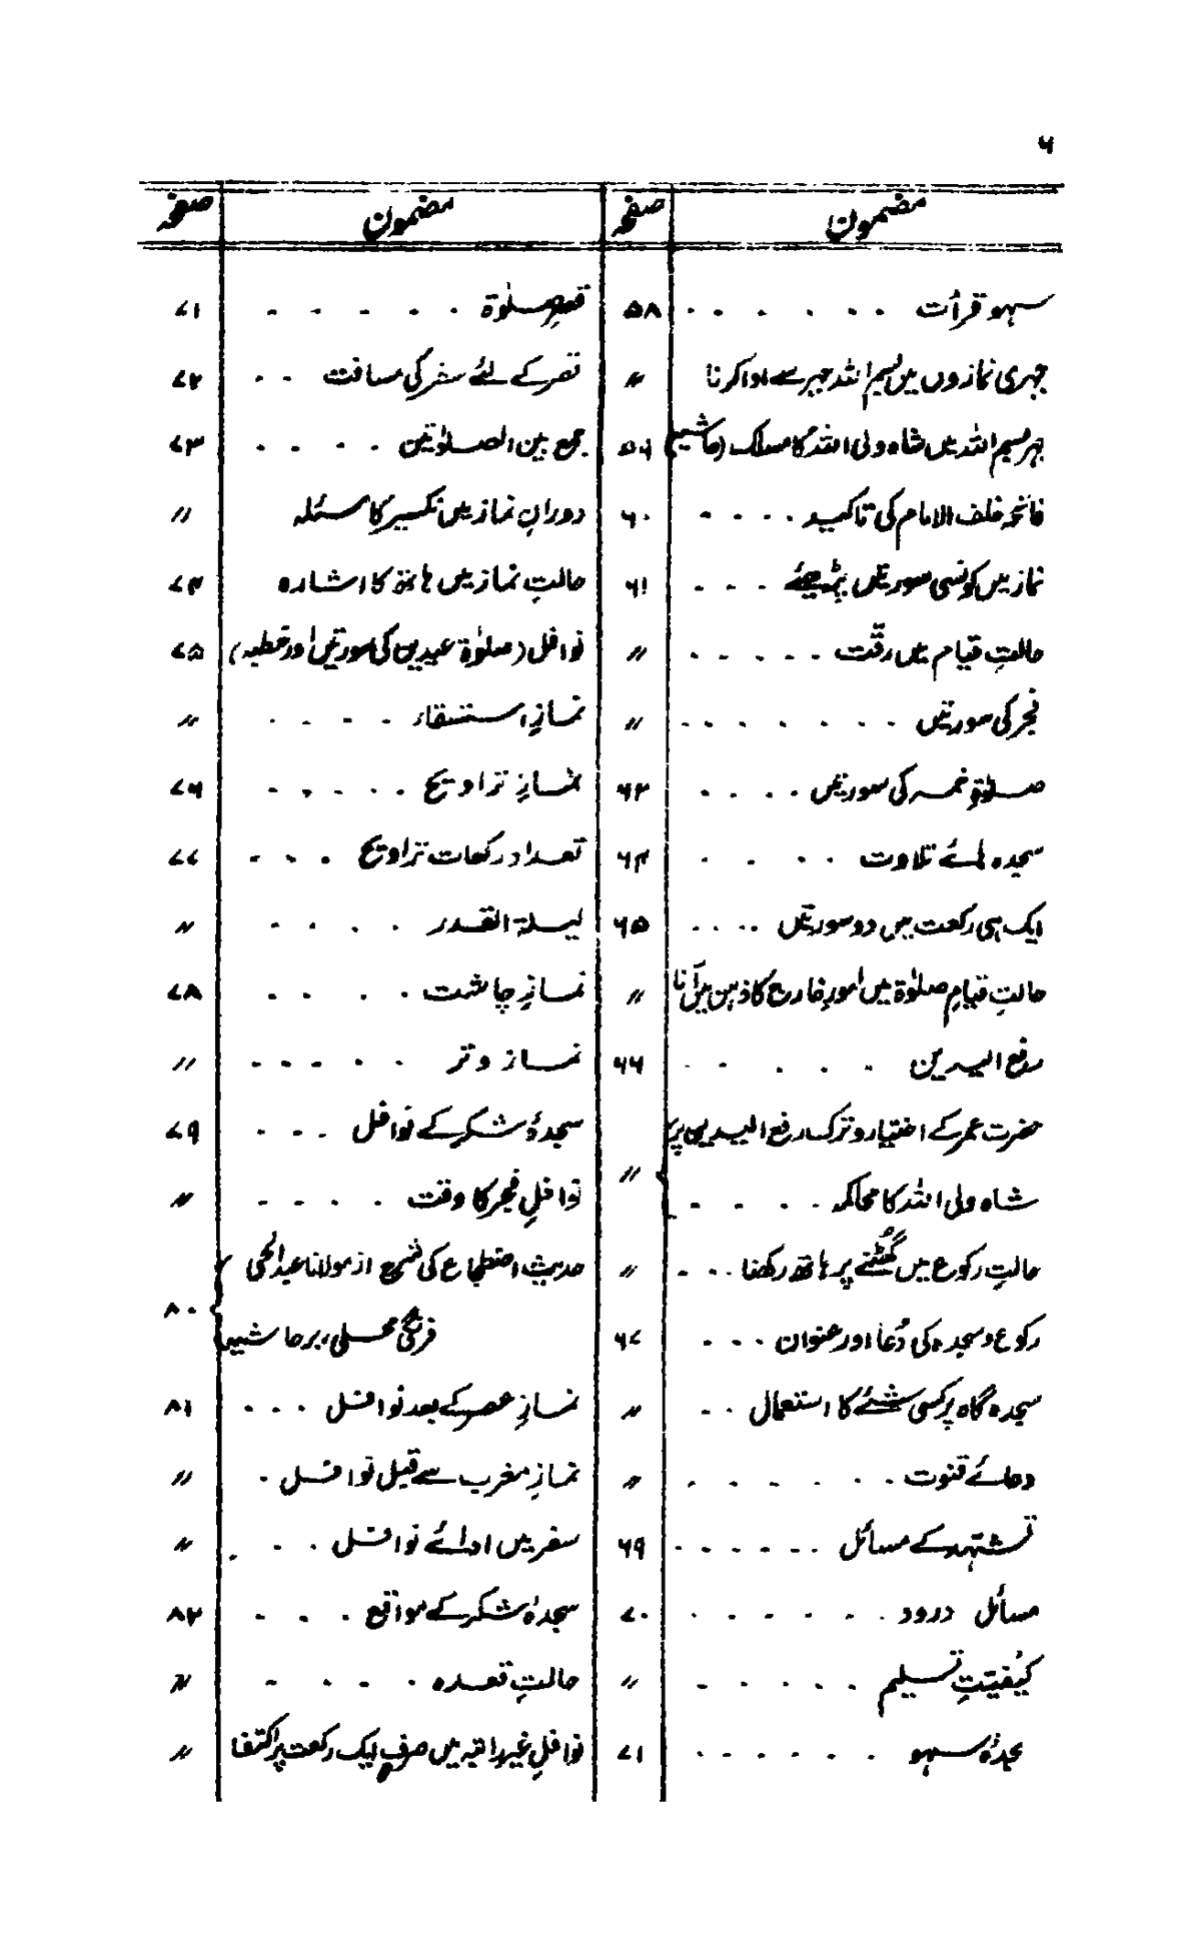 ۶
مضمون صفحہ مضمون صفحہ
سہو قرأت ۵۸
جہری نمازوں میں بسم اللہ جہر سے ادا کرنا 〃
جہر بسم اللہ میں شاہ ولی اللہ کا مسلک (حاشیہ) ۵۹
فاتحہ خلف الامام کی تاکید ۶۰
نماز میں کونسی سورتیں پڑھیئے ۶۱
حالتِ قیام میں رقّت 〃
فجر کی سورتیں 〃
صلوٰۃِ خمسہ کی سورتیں ۶۲
سجدہ ہائے تلاوت ۶۴
ایک ہی رکعت میں دو سورتیں ۶۵
حالتِ قیامِ صلوٰۃ میں اُمورِ خارج کا ذہن میں آنا 〃
رفع الیدین ۶۶
حضرت عمر کے اختیار و ترک رفع الیدین پر
شاہ ولی اللہ کا محاکمہ 〃
حالتِ رکوع میں گھُٹنے پر ہاتھ رکھنا 〃
رکوع و سجدہ کی دُعا اور عنوان ۶۷
سجدہ گاہ پر کسی شئے کا استعمال 〃
دعائے قنوت 〃
تشہد کے مسائل ۶۹
مسائل درود ۷۰
کیفیتِ تسلیم 〃
سجدۂ سہو ۷۱
قصرِ صلوٰۃ ۷۱
قصر کے لئے سفر کی مسافت ۷۲
جمع بین الصلوٰتین ۷۳
دورانِ نماز میں نکسیر کا مسئلہ 〃
حالتِ نماز میں ہاتھ کا اشارہ ۷۴
نوافل (صلوٰۃ عیدین کی سورتیں اور خطبہ) ۷۵
نمازِ استسقاء 〃
نمازِ تراویح ۷۶
تعداد رکعات تراویح ۷۷
لیلۃ القدر 〃
نمازِ چاشت ۷۸
نماز وتر 〃
سجدۂ شکر کے نوافل ۷۹
نوافلِ فجر کا وقت 〃
حدیث اضطجاع کی شرح از مولانا عبدالحی
فرنگی محلی، برحاشیہ ۸۰
نمازِ عصر کے بعد نوافل ۸۱
نمازِ مغرب سے قبل نوافل 〃
سفر میں ادائے نوافل 〃
سجدۂ شکر کے مواقع ۸۲
حالتِ قعدہ 〃
نوافلِ غیر راتبہ میں صرف ایک رکعت پر اکتفا 〃